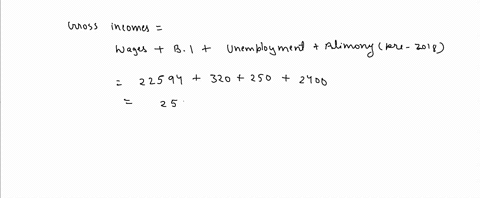 Gross incomes =
Wages + B.I + Unemployment + Alimony (pre-2018)
= 22594 + 320 + 250 + 2400
= 25